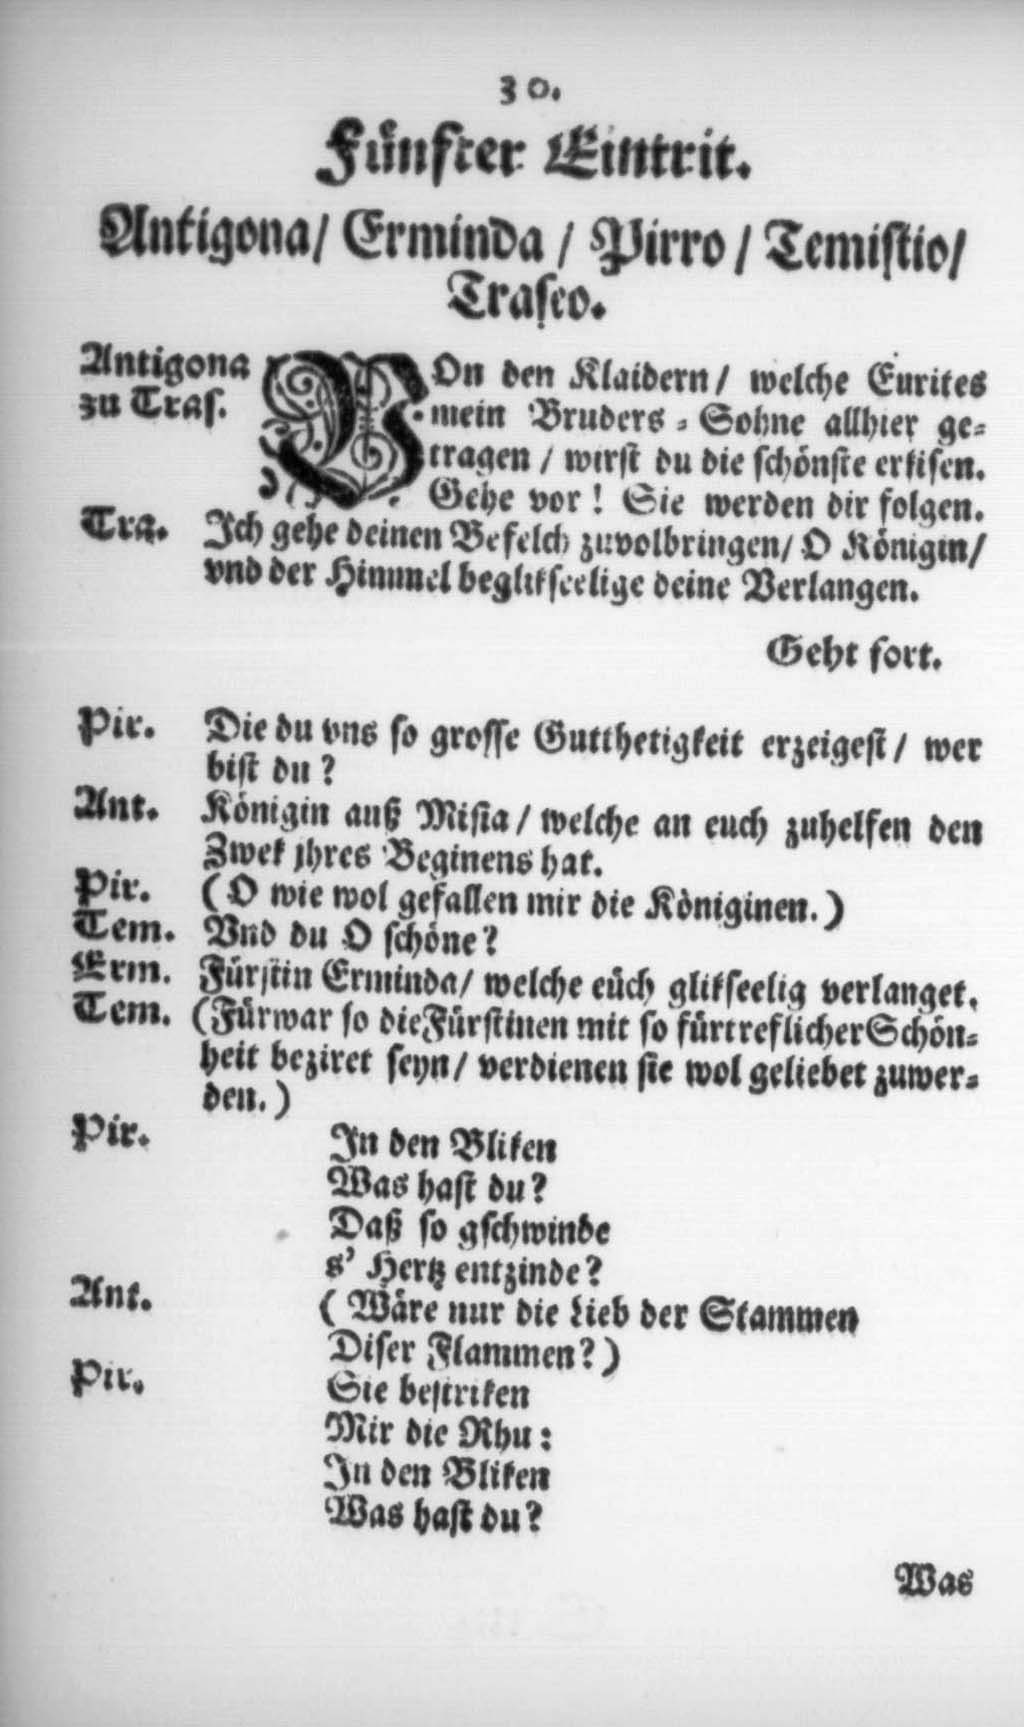 30.
Fünfter Eintrit.
Antigona/ Erminda / Pirro / Temistio/
Traseo.
Antigona zu Tras. VOn den Klaidern / welche Eurites
mein Bruders - Sohne allhier ge-
tragen / wirst du die schönste erkisen.
Gehe vor ! Sie werden dir folgen.
Tra. Ich gehe deinen Befelch zuvolbringen/ O Königin/
vnd der Himmel beglikseelige deine Verlangen.
Geht fort.
Pir. Die du vns so grosse Gutthetigkeit erzeigest / wer
bist du ?
Ant. Königin auß Misia / welche an euch zuhelfen den
Zwek jhres Beginens hat.
Pir. ( O wie wol gefallen mir die Königinen. )
Tem. Vnd du O schöne ?
Erm. Fürstin Erminda/ welche eüch glikseelig verlanget.
Tem. (Fürwar so die Fürstinen mit so fürtreflicher Schön-
heit beziret seyn / verdienen sie wol geliebet zuwer-
den. )
Pir. In den Bliken
Was hast du ?
Daß so gschwinde
s' Hertz entzinde ?
Ant. ( Wäre nur die Lieb der Stammen
Diser Flammen ? )
Pir. Sie bestriken
Mir die Rhu :
In den Bliken
Was hast du ?
Was